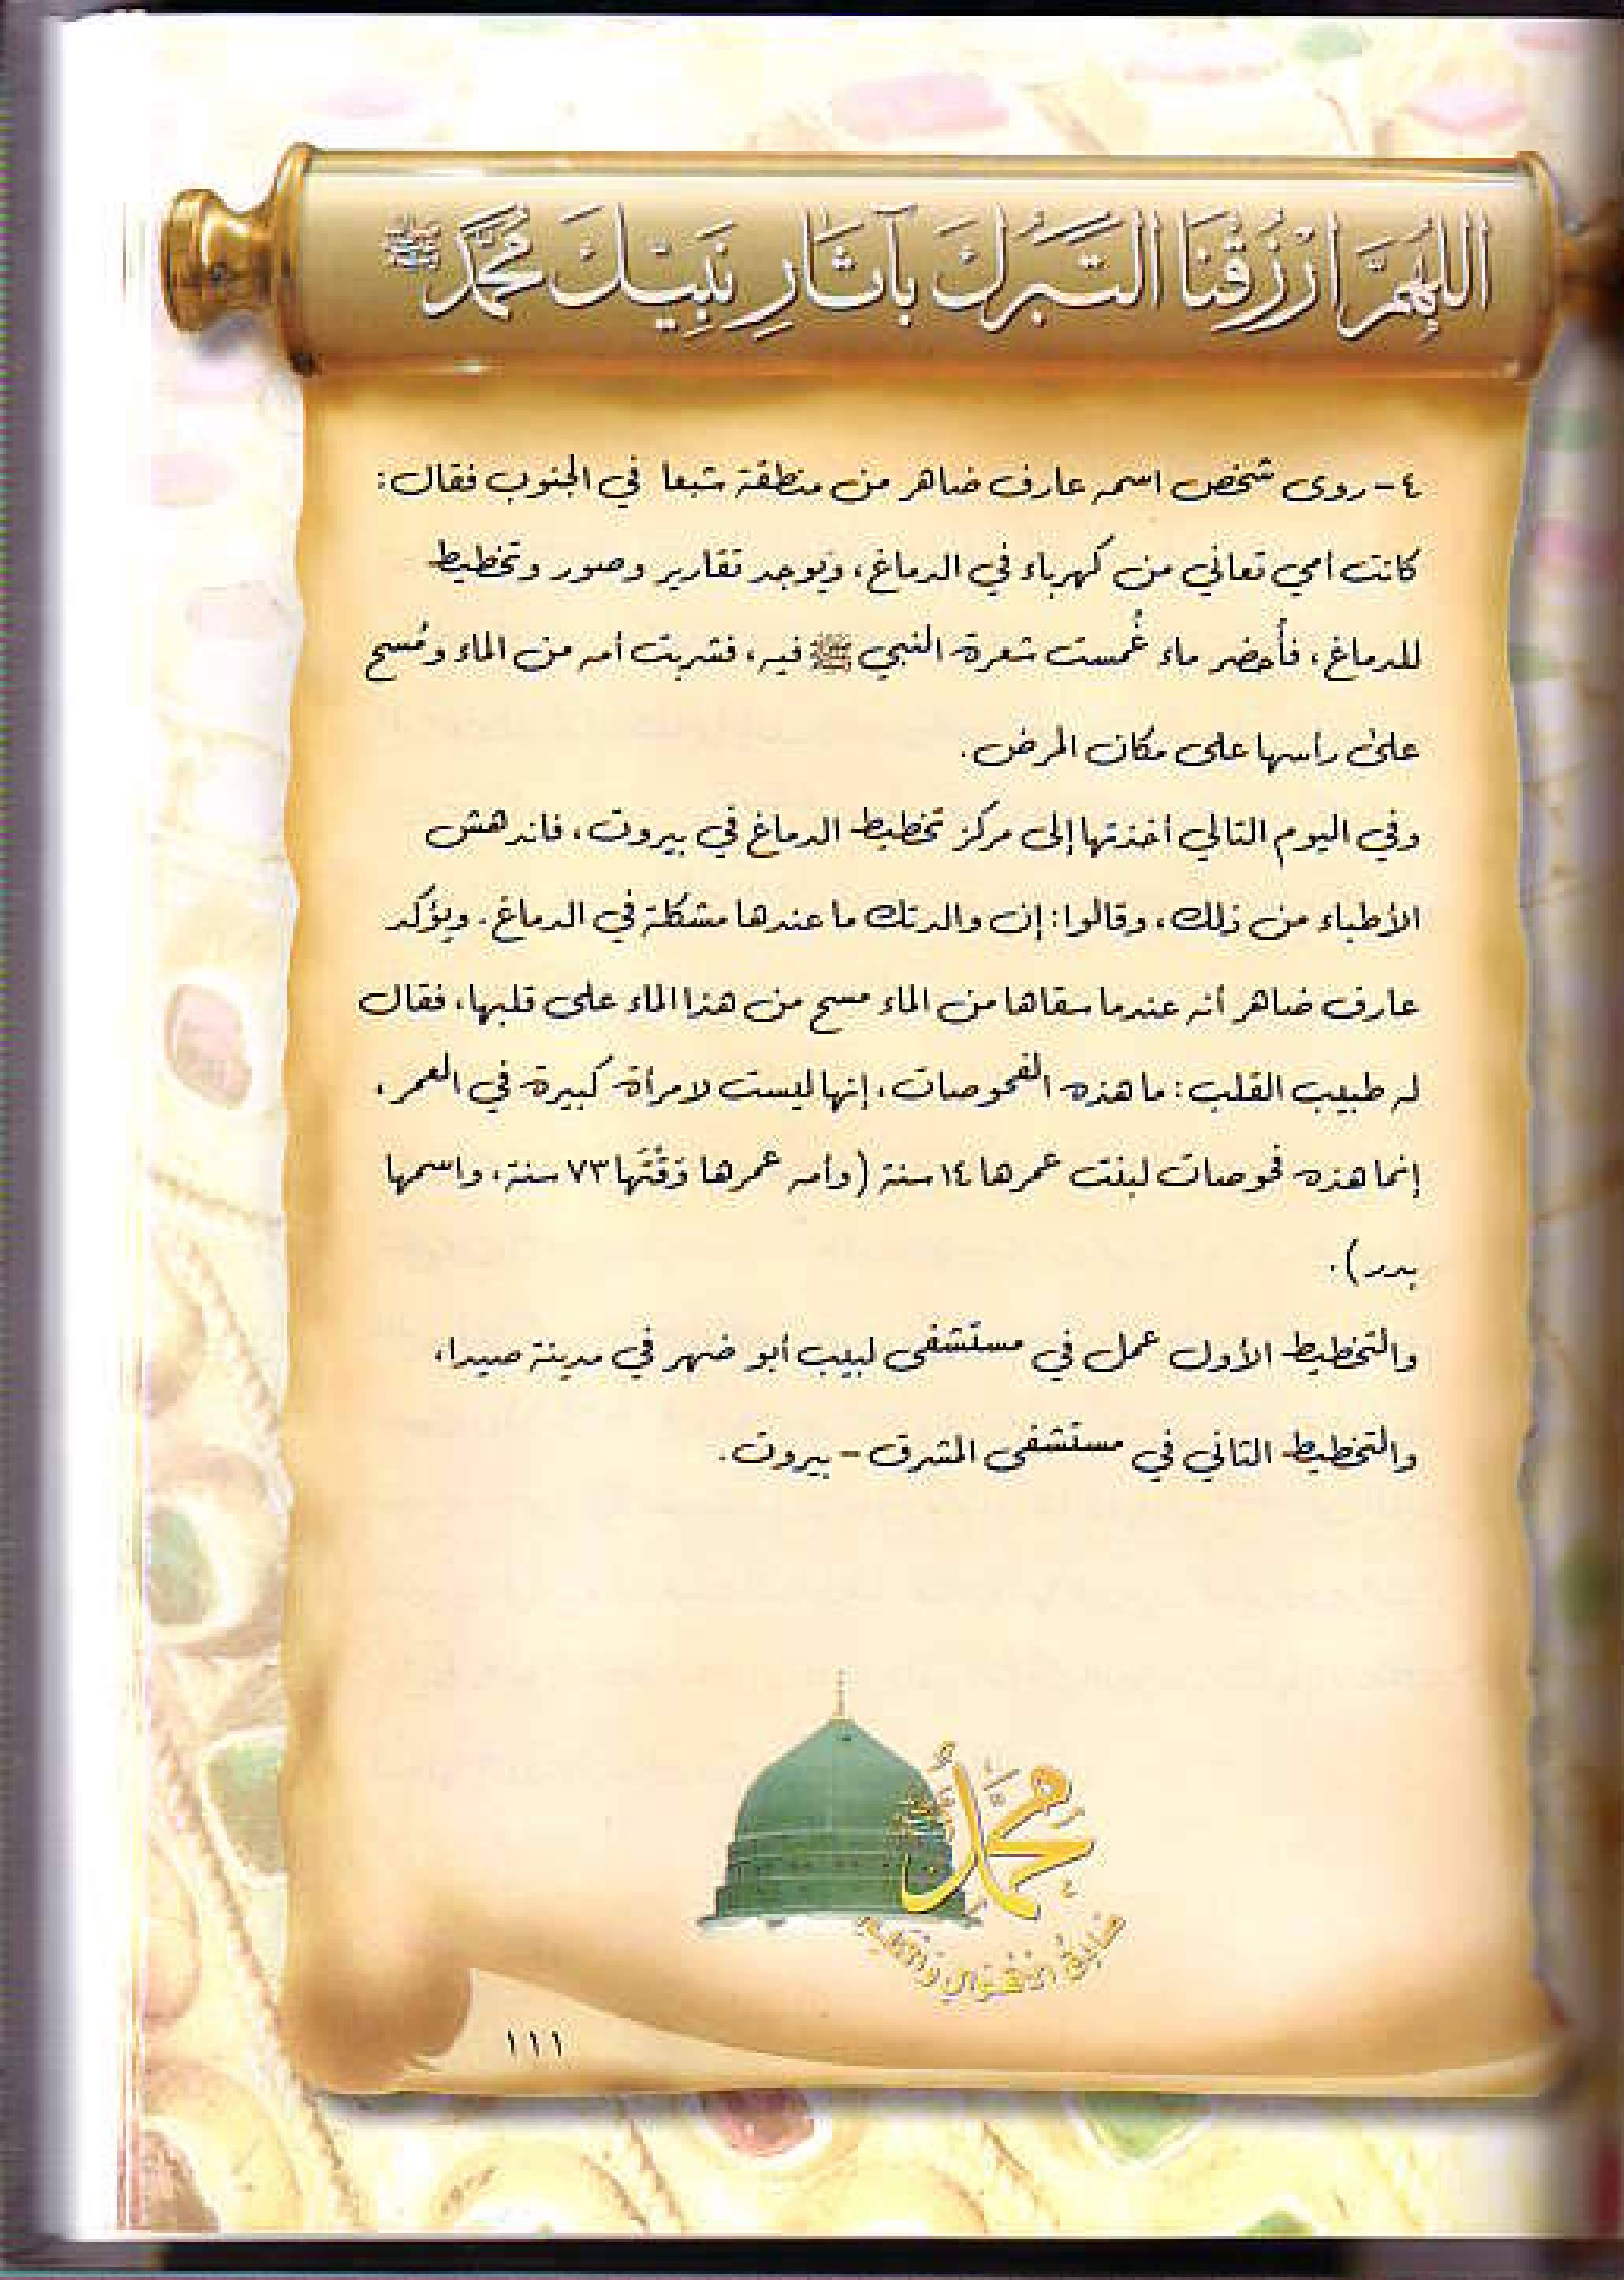 اللهم ارزقنا التبرك بآثار نبيك محمد ﷺ
٤- روى شخص اسمه عارف ضاهر من منطقة شبعا في الجنوب فقال:
كانت أمي تعاني من كهرباء في الدماغ، ويوجد تقارير وصور وتخطيط
للدماغ، فأُحضر ماء غُمست شعرة النبي ﷺ فيه، فشربت أمه من الماء ومُسح
على رأسها على مكان المرض.
وفي اليوم التالي أخذتها إلى مركز تخطيط الدماغ في بيروت، فاندهش
الأطباء من ذلك، وقالوا: إن والدتك ما عندها مشكلة في الدماغ. ويؤكد
عارف ضاهر أنه عندما سقاها من الماء مسح من هذا الماء على قلبها، فقال
له طبيب القلب: ما هذه الفحوصات، إنها ليست لامرأة كبيرة في العمر،
إنما هذه فحوصات لبنت عمرها ١٤ سنة (وأمه عمرها وَقْتَها ٧٣ سنة، واسمها
بدر).
والتخطيط الأول عمل في مستشفى لبيب أبو ضهر في مدينة صيدا،
والتخطيط الثاني في مستشفى المشرق - بيروت.
محمد
١١١